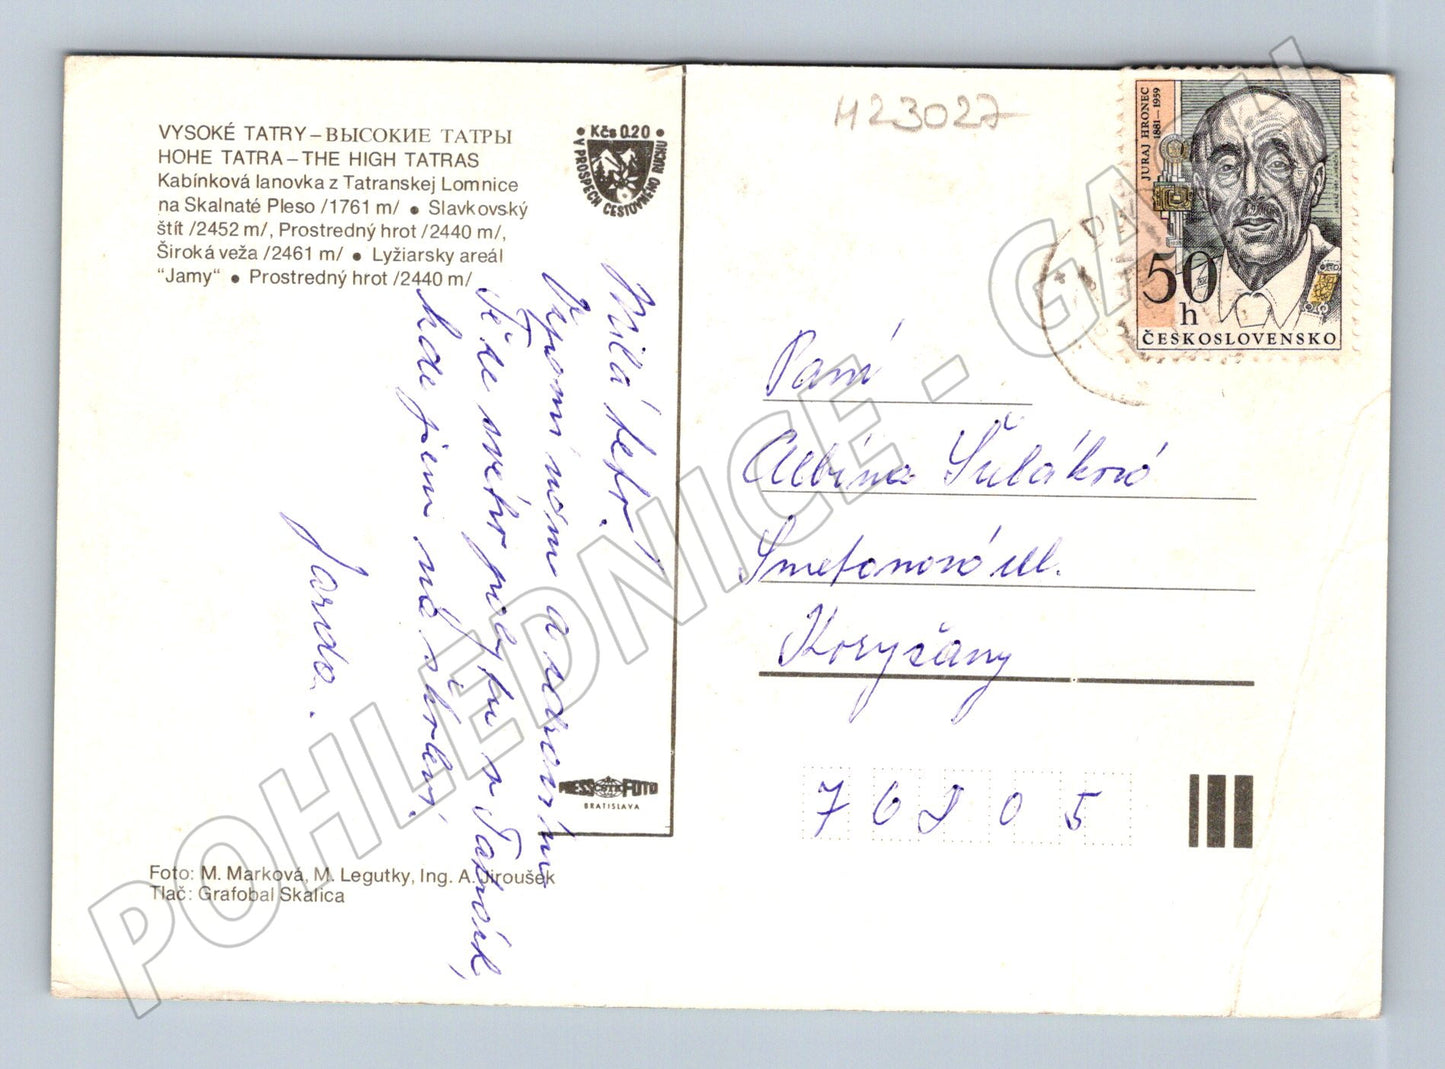 VYSOKÉ TATRY – ВЫСОКИЕ ТАТРЫ
HOHE TATRA – THE HIGH TATRAS
Kabínková lanovka z Tatranskej Lomnice
na Skalnaté Pleso /1761 m/ ● Slavkovský
štít /2452 m/, Prostredný hrot /2440 m/,
Široká veža /2461 m/ ● Lyžiarsky areál
“Jamy“ ● Prostredný hrot /2440 m/
• Kčs 0.20 •
V PROSPECH CESTOVNÉHO RUCHU
M23027
JURAJ HRONEC
1881–1959
50
h
ČESKOSLOVENSKO
Milá teto!
a
Tě ze
Tater,
kde jsem na
Jarda.
Paní
Albína Šuláková
Smetanová ul.
Koryčany
76805
PRESSFOTO
ČSTK
BRATISLAVA
Foto: M. Marková, M. Legutky, Ing. A. Jiroušek
Tlač: Grafobal Skalica
POHLEDNICE - GAJU